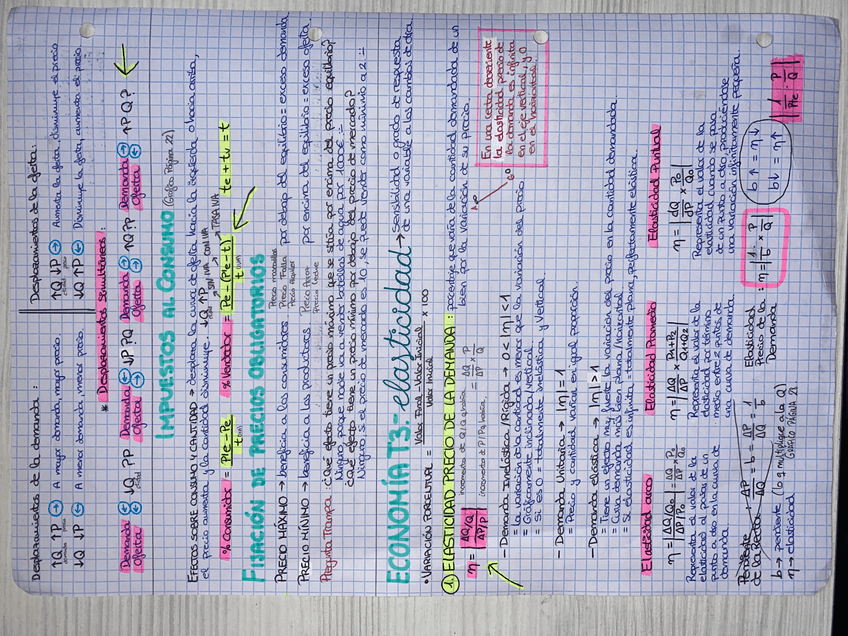 Desplazamientos de la demanda:
↑Q ↑P → A mayor demanda, mayor precio.
↓Q ↓P ← A menor demanda, menor precio.
Desplazamientos de la oferta:
↑Q ↓P → Aumenta la oferta, disminuye el precio
↓Q ↑P ← Disminuye la oferta, aumenta el precio.
* Desplazamientos simultáneos:
Demanda ← ↓Q ?P Demanda ← ↓P ?Q Demanda → ↑Q ?P Demanda → ↑P Q?
Oferta ← Oferta → Oferta → Oferta ←
IMPUESTOS AL CONSUMO (Gráfico Página 22)
EFECTOS SOBRE CONSUMO Y CANTIDAD → desplaza la curva de oferta hacia la izquierda o hacia arriba,
el precio aumenta y la cantidad disminuye. ↓Q ↑P
% Consumidor = PIe-Pe / t % Vendedor = Pe-(PIe-t) / t tc + tv = t
FIJACIÓN DE PRECIOS OBLIGATORIOS
PRECIO MÁXIMO → beneficia a los consumidores por debajo del equilibrio = exceso demanda.
PRECIO MÍNIMO → beneficia a los productores por encima del equilibrio = exceso oferta.
Pregunta Trampa: ¿Qué efecto tiene un precio máximo que se sitúa por encima del precio equilibrio?
Ninguno, porque nadie va a vender botellas de agua por 1000€ =
¿Qué efecto tiene un precio mínimo por debajo del precio de mercado?
Ninguno. Si el precio de mercado es 10, se puede vender como mínimo a 2 =
ECONOMÍA T3: elasticidad → Sensibilidad o grado de respuesta
de una variable a los cambios de otra
• VARIACIÓN PORCENTUAL = Valor Final - Valor Inicial / Valor Inicial x 100
1. ELASTICIDAD PRECIO DE LA DEMANDA: porcentaje que varía de la cantidad demandada de un
bien por la variación de su precio.
η = |ΔQ/Q / ΔP/P| = ΔQ/ΔP x P/Q
En una recta decreciente
la elasticidad precio de
la demanda es infinita
en el eje vertical, y 0
en el horizontal.
- Demanda inelástica/Rígida → 0 < |η| < 1
= la variación de la cantidad es menor que la variación del precio
= Gráficamente inclinada/vertical
= Si es 0 = totalmente inelástica y vertical
- Demanda Unitaria → |η| = 1
= Precio y cantidad varían en igual proporción.
- Demanda elástica → |η| > 1
= Tiene un efecto muy fuerte la variación del precio en la cantidad demandada.
= Curva demanda más bien plana/horizontal
= Si elasticidad es infinita = totalmente plana, perfectamente elástica.
Elasticidad arco
η = |ΔQ/Q0 / ΔP/P0| = ΔQ/ΔP P0/Q0
Representa el valor de la
elasticidad al pasar de un
punto a otro en la curva de
demanda.
Elasticidad Promedio
η = |ΔQ/ΔP x P1+P2/Q1+Q2|
Representa el valor de la
elasticidad por término
medio entre 2 puntos de
una curva de demanda.
Elasticidad Puntual
η = |dQ/dP x P0/Q0|
Representa el valor de la
elasticidad cuando se pasa
de un punto a otro, produciéndose
una variación infinitamente pequeña.
Pendiente
de la Recta: ΔP/ΔQ = -b = ΔP/ΔQ = 1/b
Elasticidad
Precio de la
Demanda : η = |1/b x P/Q|
b↑ = η↓
b↓ = η↑
b → pendiente (lo q multiplique a la Q)
η → elasticidad
GRÁFICO PÁGINA 21